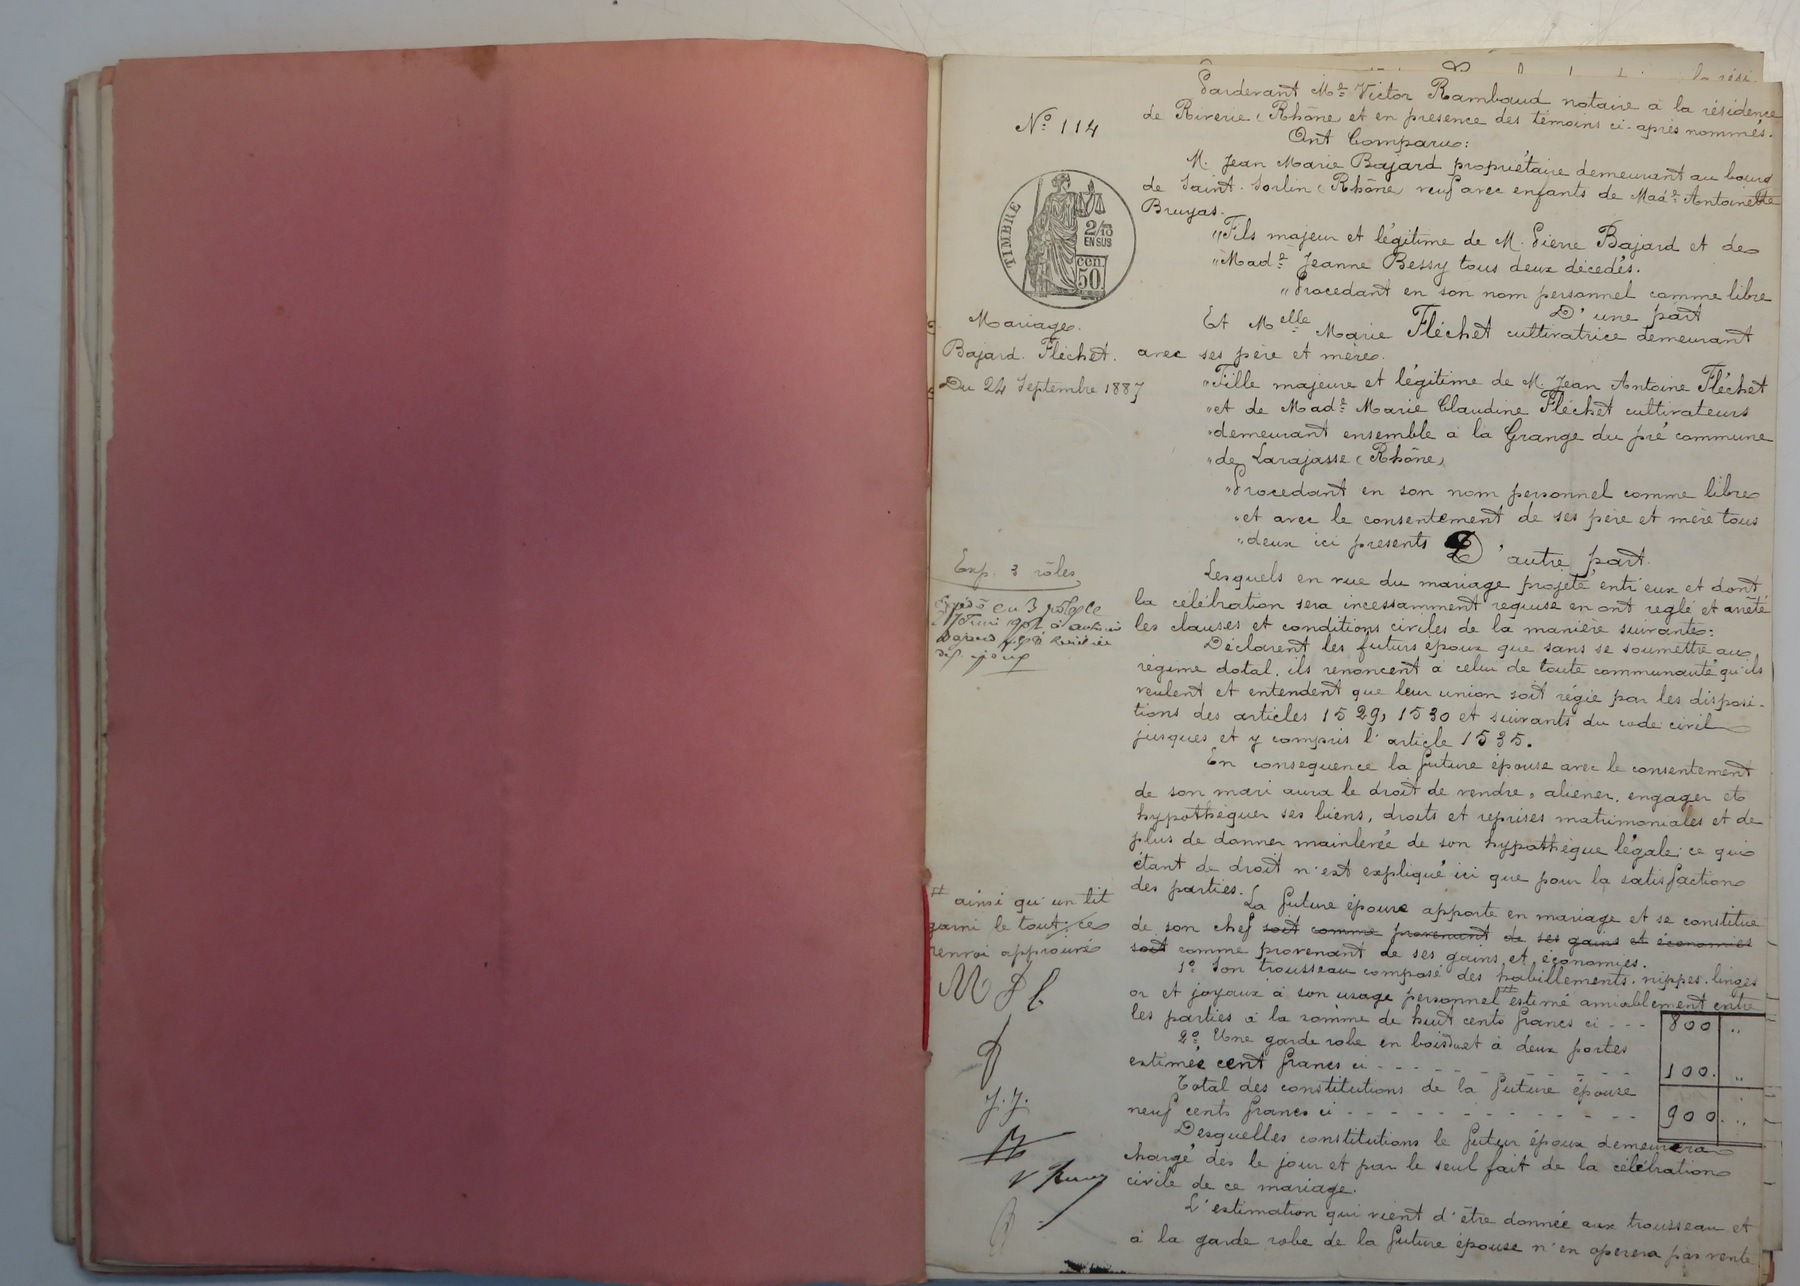 N.º 114
TIMBRE
2/10
EN SUS
cen.
50
Mariage.
Bajard. Fléchet.
Du 24 Septembre 1887
Exp. 3 rôles
ainsi qu'un lit
garni le tout, ce
renvoi approuvé
J. J.
Pardevant Me Victor Rambaud notaire à la résidence
de Riverie (Rhône) et en présence des témoins ci-après nommés.
Ont Comparu:
M. Jean Marie Bajard propriétaire demeurant au bourg
de Saint-Sorlin (Rhône) veuf avec enfants de Made Antoinette
Bruyas.
"Fils majeur et légitime de M. Pierre Bajard et de
"Made Jeanne Bessy tous deux décédés.
"Procedant en son nom personnel comme libre
D'une part
Et Melle Marie Fléchet cultivatrice demeurant
avec ses père et mère.
"Fille majeure et légitime de M. Jean Antoine Fléchet
"et de Made Marie Claudine Fléchet cultivateurs
"demeurant ensemble à la Grange du pré commune
"de Larajasse (Rhône)
"Procedant en son nom personnel comme libre
"et avec le consentement de ses père et mère tous
"deux ici présents D'autre part.
Lesquels en vue du mariage projeté entr'eux et dont
la célébration sera incessamment requise en ont réglé et arrêté
les clauses et conditions civiles de la manière suivante:
Déclarent les futurs époux que sans se soumettre au
régime dotal, ils renoncent à celui de toute communauté qu'ils
veulent et entendent que leur union soit régie par les disposi-
tions des articles 1529, 1530 et suivants du code civil
jusques et y compris l'article 1535.
En conséquence la future épouse avec le consentement
de son mari aura le droit de vendre, aliener, engager et
hypothéquer ses biens, droits et reprises matrimoniales et de
plus de donner mainlevée de son hypothèque légale ce qui
étant de droit n'est expliqué ici que pour la satisfaction
des parties.
La future épouse apporte en mariage et se constitue
de son chef soit comme provenant de ses gains et économies
soit comme provenant de ses gains et économies.
1º Son trousseau composé des habillements, nippes, linges
or et joyaux à son usage personnel estimé amiablement entre
les parties à la somme de huit cents francs ci --- 800 "
2º Une garde robe en bois à deux portes
estimée cent francs ci - - - - - - - - - 100. "
Total des constitutions de la future épouse
neuf cents francs ci - - - - - - - - - - - 900. "
Desquelles constitutions le futur époux demeurera
chargé dès le jour et par le seul fait de la célébration
civile de ce mariage.
L'estimation qui vient d'être donnée aux trousseau et
à la garde robe de la future épouse n'en opérera pas vente